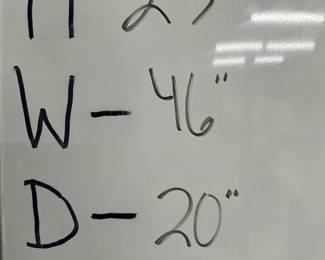 W - 46"
D - 20"